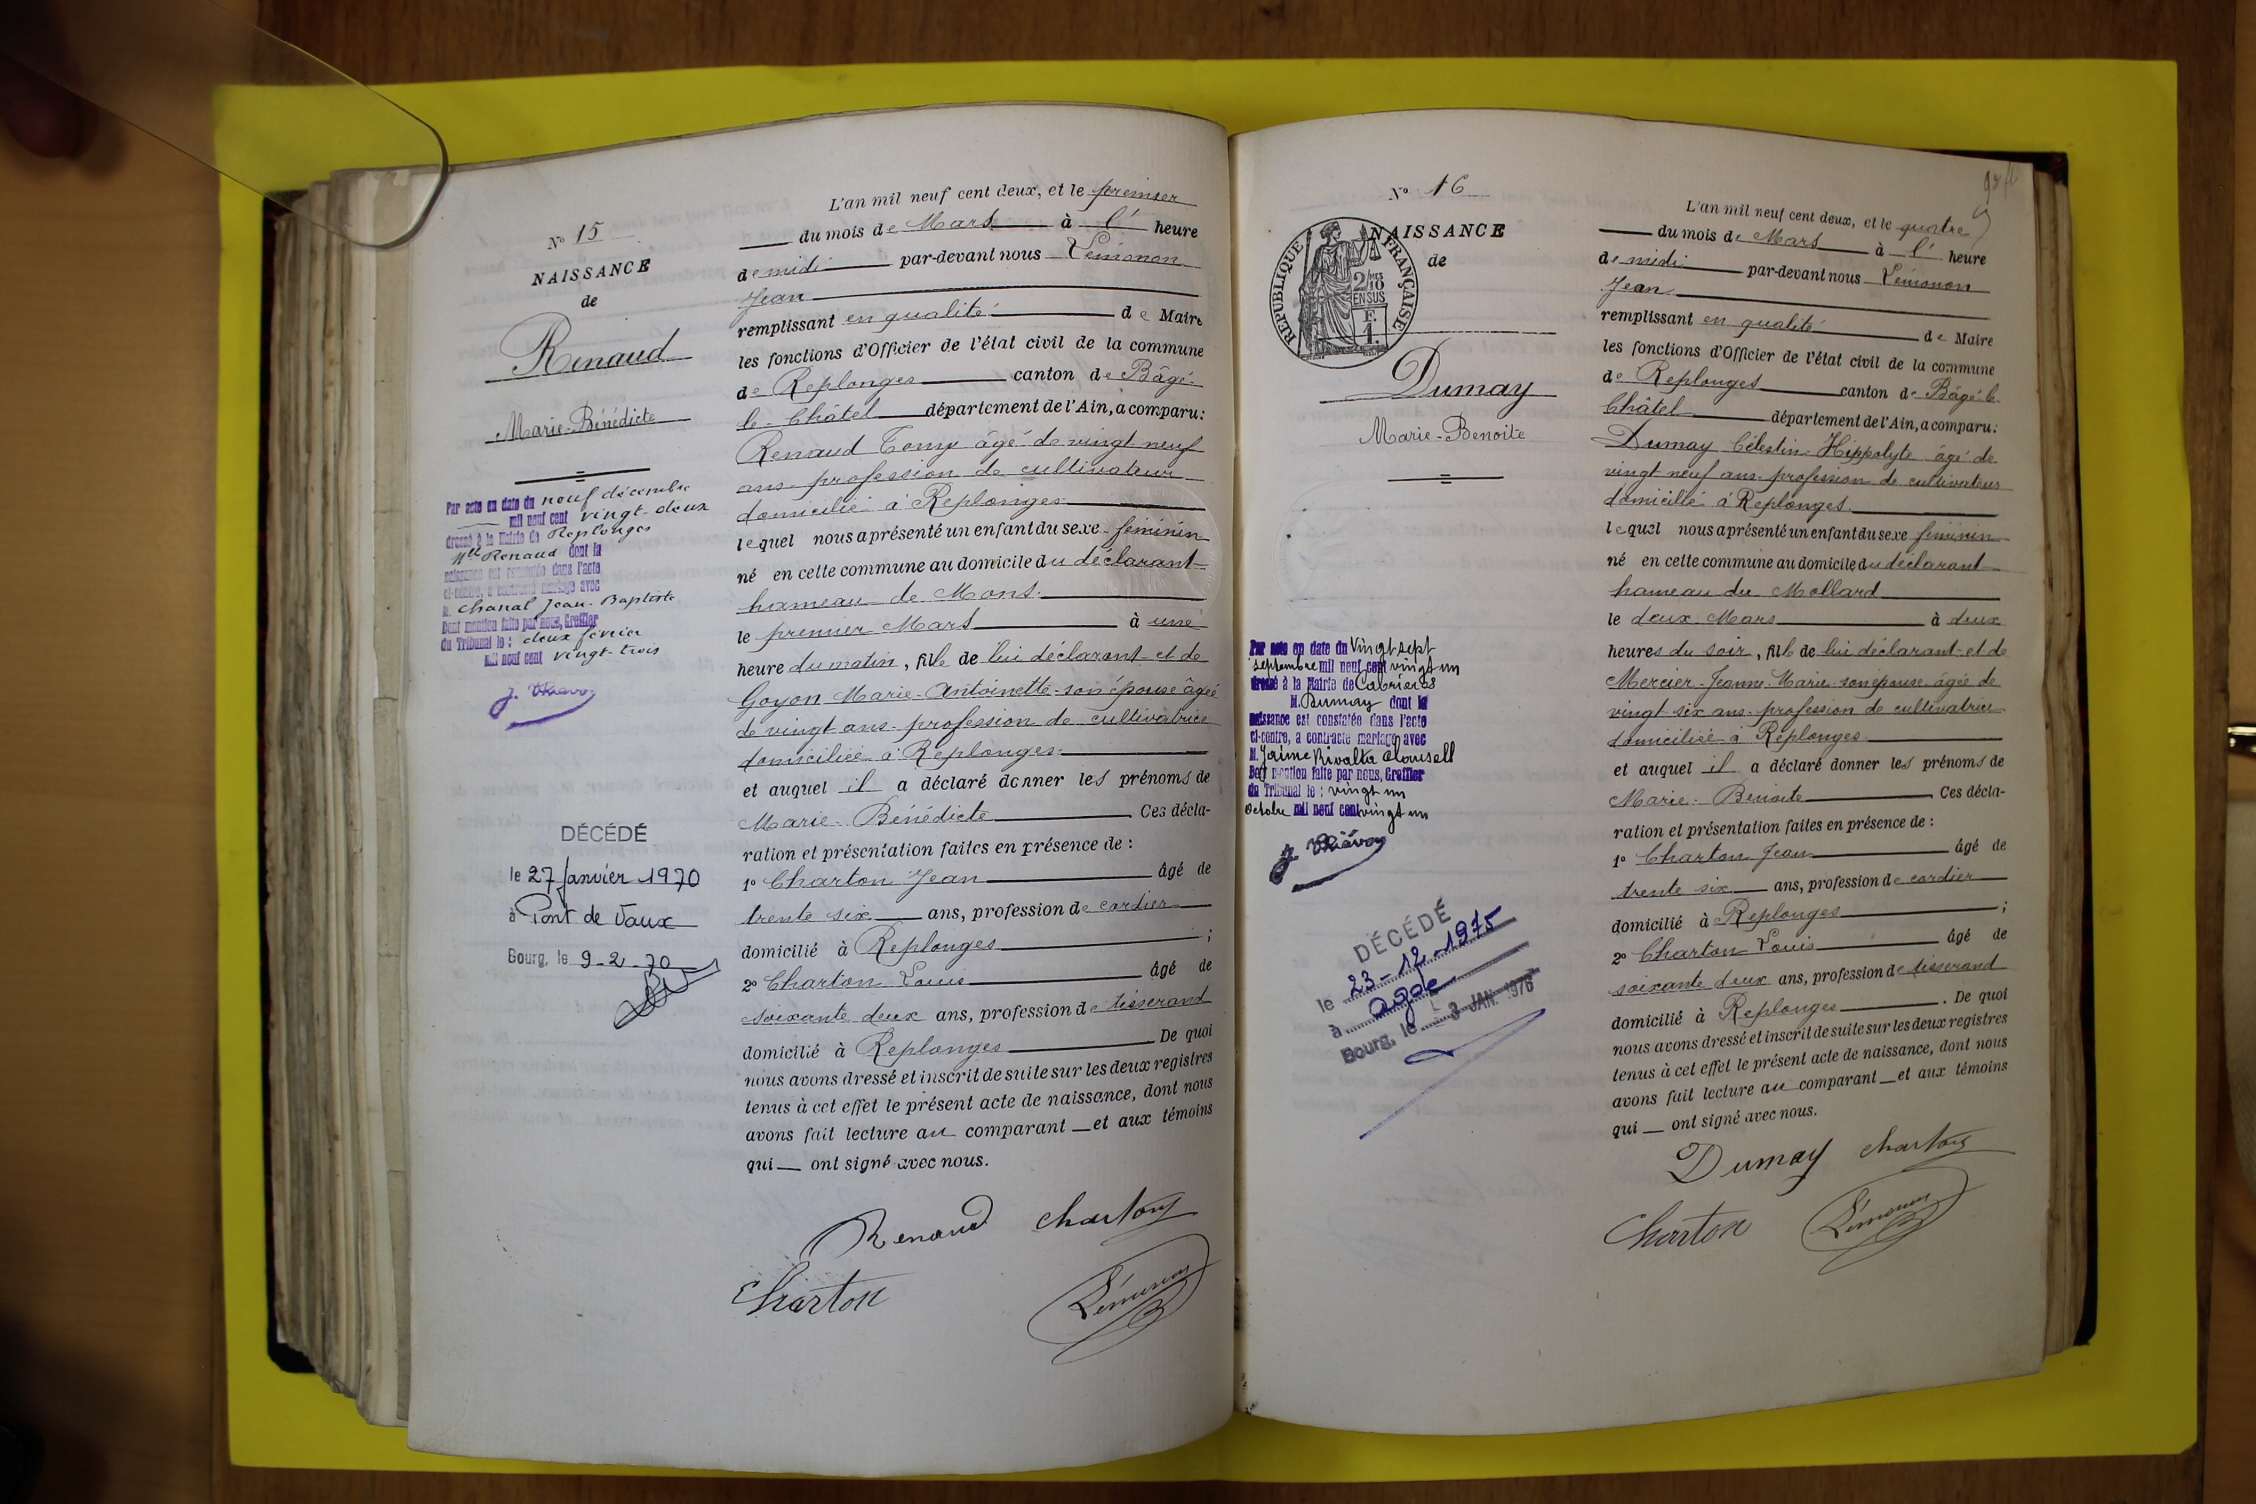 N° 15
NAISSANCE
de
Renaud
Marie-Bénédicte
Par acte en date du neuf décembre
mil neuf cent vingt-deux
dressé à la Mairie de Replonges
Mlle Renaud dont la
naissance est constatée dans l'acte
ci-contre, a contracté mariage avec
M. Chanal Jean-Baptiste
Dont mention faite par nous, Greffier
du Tribunal le : deux février
mil neuf cent vingt-trois
DÉCÉDÉ
le 27 Janvier 1970
à Pont de Vaux
Bourg, le 9-2-70
L'an mil neuf cent deux, et le premier
du mois de Mars à l' heure
de midi par-devant nous Lémonon
Jean
remplissant en qualité de Maire
les fonctions d'Officier de l'état civil de la commune
de Replonges canton de Bâgé-
le-Châtel département de l'Ain, a comparu :
Renaud Tony âgé de vingt neuf
ans profession de cultivateur
domicilié à Replonges
lequel nous a présenté un enfant du sexe féminin
né en cette commune au domicile du déclarant
hameau de Mons.
le premier Mars à une
heure du matin, fille de lui déclarant et de
Goyon Marie-Antoinette son épouse âgée
de vingt ans profession de cultivatrice
domiciliée à Replonges
et auquel il a déclaré donner les prénoms de
Marie-Bénédicte Ces décla-
ration et présentation faites en présence de :
1° Charton Jean âgé de
trente six ans, profession de cordier
domicilié à Replonges ;
2° Charton Louis âgé de
soixante deux ans, profession de tisserand
domicilié à Replonges De quoi
nous avons dressé et inscrit de suite sur les deux registres
tenus à cet effet le présent acte de naissance, dont nous
avons fait lecture au comparant et aux témoins
qui ont signé avec nous.
Renaud Charton
Charton Lémonon
N° 16
NAISSANCE
de
REPUBLIQUE FRANÇAISE
2/10
EN SUS
F.
1.
Dumay
Marie-Benoite
Par acte en date du Vingt sept
septembre mil neuf cent vingt un
dressé à la Mairie de Cabrières
M. Dumay dont la
naissance est constatée dans l'acte
ci-contre, a contracté mariage avec
M. Jaime Rivalta Clousell
Dont mention faite par nous, Greffier
du Tribunal le : vingt un
Octobre mil neuf cent vingt un
DÉCÉDÉ
le 23-12-1975
à agde
Bourg, le 3 JAN. 1976
L'an mil neuf cent deux, et le quatre
du mois de Mars à l' heure
de midi par-devant nous Lémonon
Jean
remplissant en qualité de Maire
les fonctions d'Officier de l'état civil de la commune
de Replonges canton de Bâgé-le-
Châtel département de l'Ain, a comparu :
Dumay Célestin-Hippolyte âgé de
vingt neuf ans profession de cultivateur
domicilié à Replonges.
lequel nous a présenté un enfant du sexe féminin
né en cette commune au domicile du déclarant
hameau du Mollard
le deux Mars à deux
heures du soir, fille de lui déclarant et de
Mercier Jeanne-Marie son épouse âgée de
vingt six ans profession de cultivatrice
domiciliée à Replonges
et auquel il a déclaré donner les prénoms de
Marie-Benoite Ces décla-
ration et présentation faites en présence de :
1° Charton Jean âgé de
trente six ans, profession de cordier
domicilié à Replonges ;
2° Charton Louis âgé de
soixante deux ans, profession de tisserand
domicilié à Replonges . De quoi
nous avons dressé et inscrit de suite sur les deux registres
tenus à cet effet le présent acte de naissance, dont nous
avons fait lecture au comparant et aux témoins
qui ont signé avec nous.
Dumay Charton
Charton Lémonon